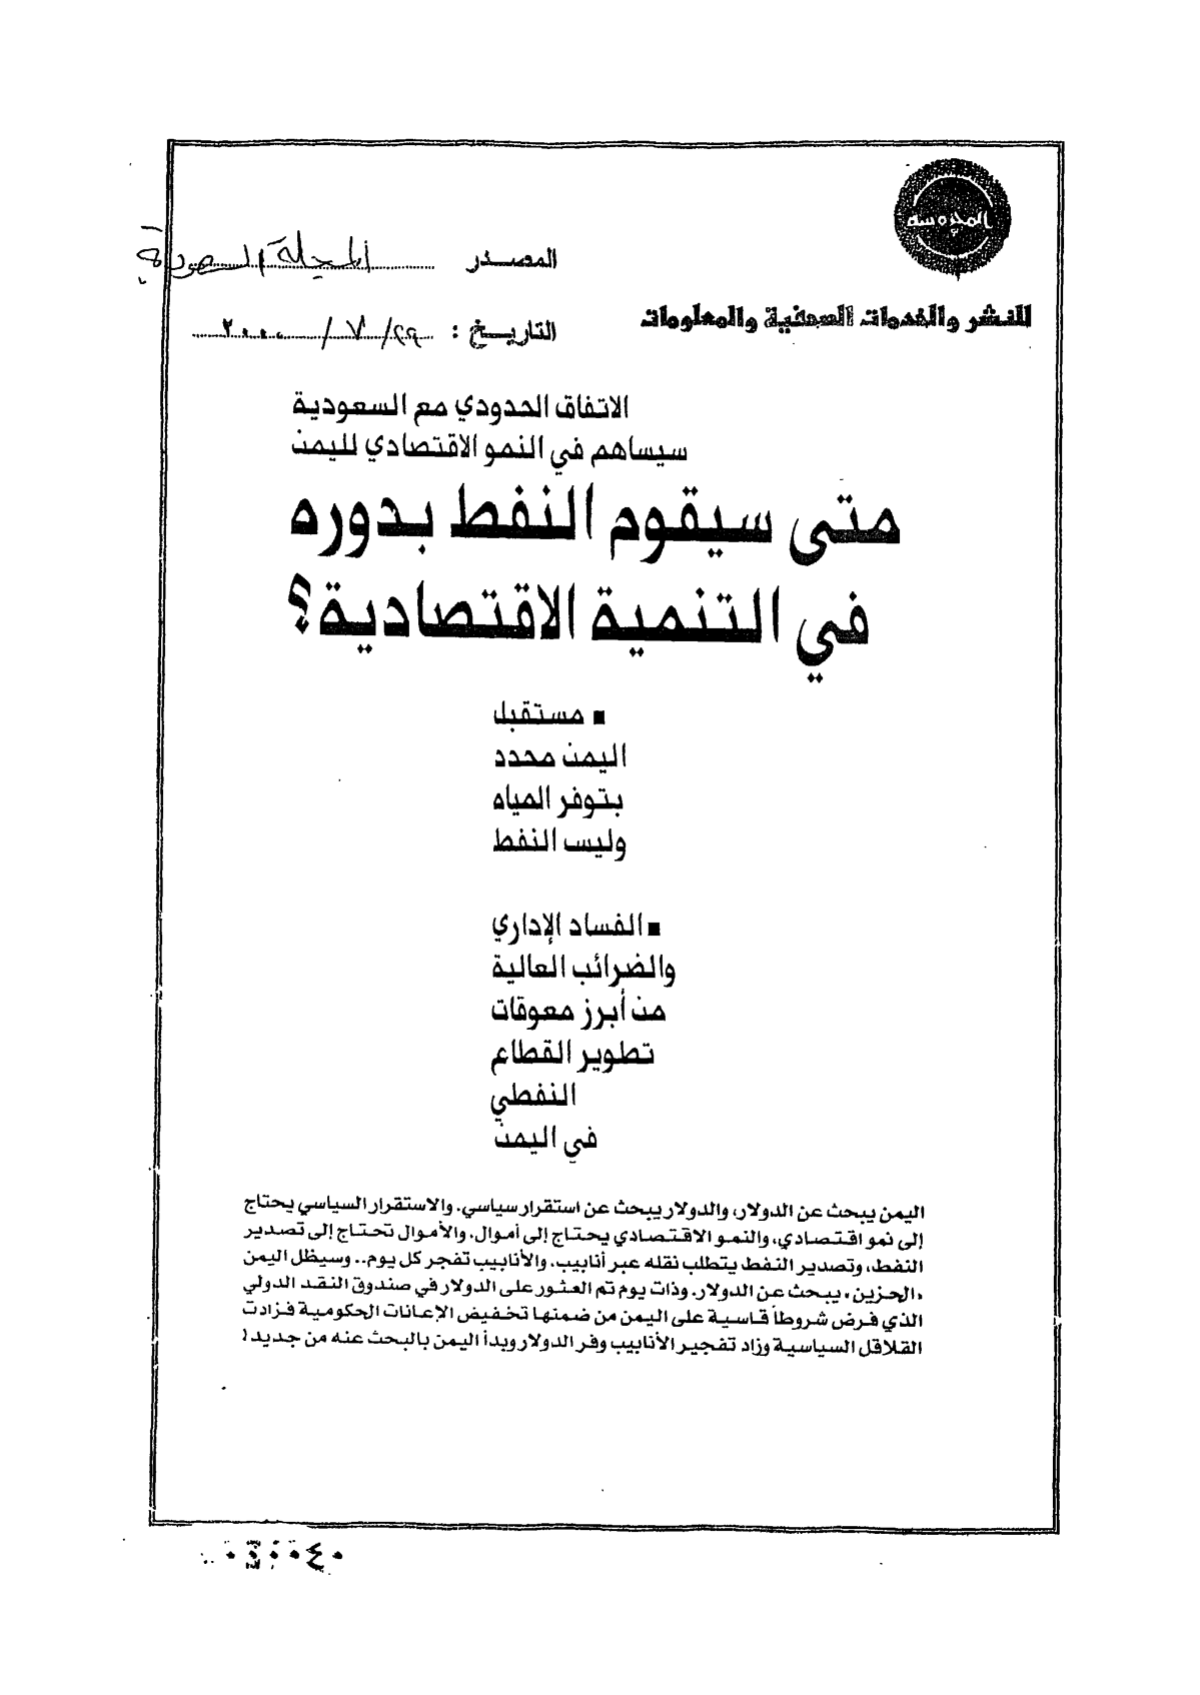 المحروسة
المصدر المجلة السعودية
للنشر والخدمات الصحفية والمعلومات
التاريخ : ٢٩/ ٧ / ٢٠٠٠
الاتفاق الحدودي مع السعودية
سيساهم في النمو الاقتصادي لليمن
متى سيقوم النفط بدوره
في التنمية الاقتصادية؟
■ مستقبل
اليمن محدد
بتوفر المياه
وليس النفط
■ الفساد الإداري
والضرائب العالية
من أبرز معوقات
تطوير القطاع
النفطي
في اليمن
اليمن يبحث عن الدولار، والدولار يبحث عن استقرار سياسي. والاستقرار السياسي يحتاج
إلى نمو اقتصادي، والنمو الاقتصادي يحتاج إلى أموال. والأموال تحتاج إلى تصدير
النفط، وتصدير النفط يتطلب نقله عبر أنابيب. والأنابيب تفجر كل يوم.. وسيظل اليمن
«الحزين» يبحث عن الدولار. وذات يوم تم العثور على الدولار في صندوق النقد الدولي
الذي فرض شروطاً قاسية على اليمن من ضمنها تخفيض الإعانات الحكومية فزادت
القلاقل السياسية وزاد تفجير الأنابيب وفر الدولار وبدأ اليمن بالبحث عنه من جديد!